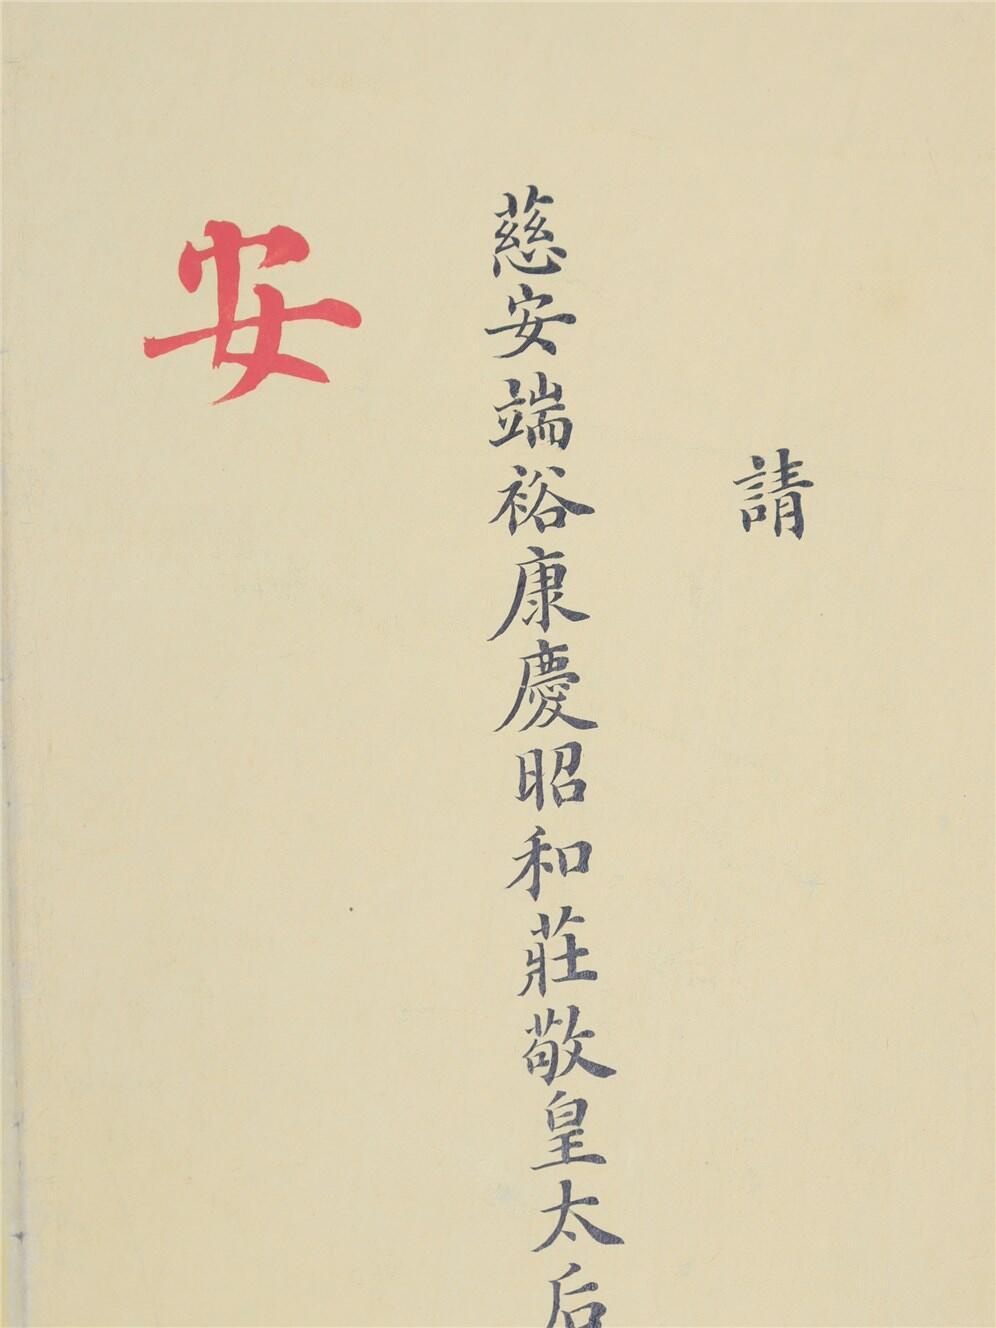 請
慈安端裕康慶昭和莊敬皇太后
安